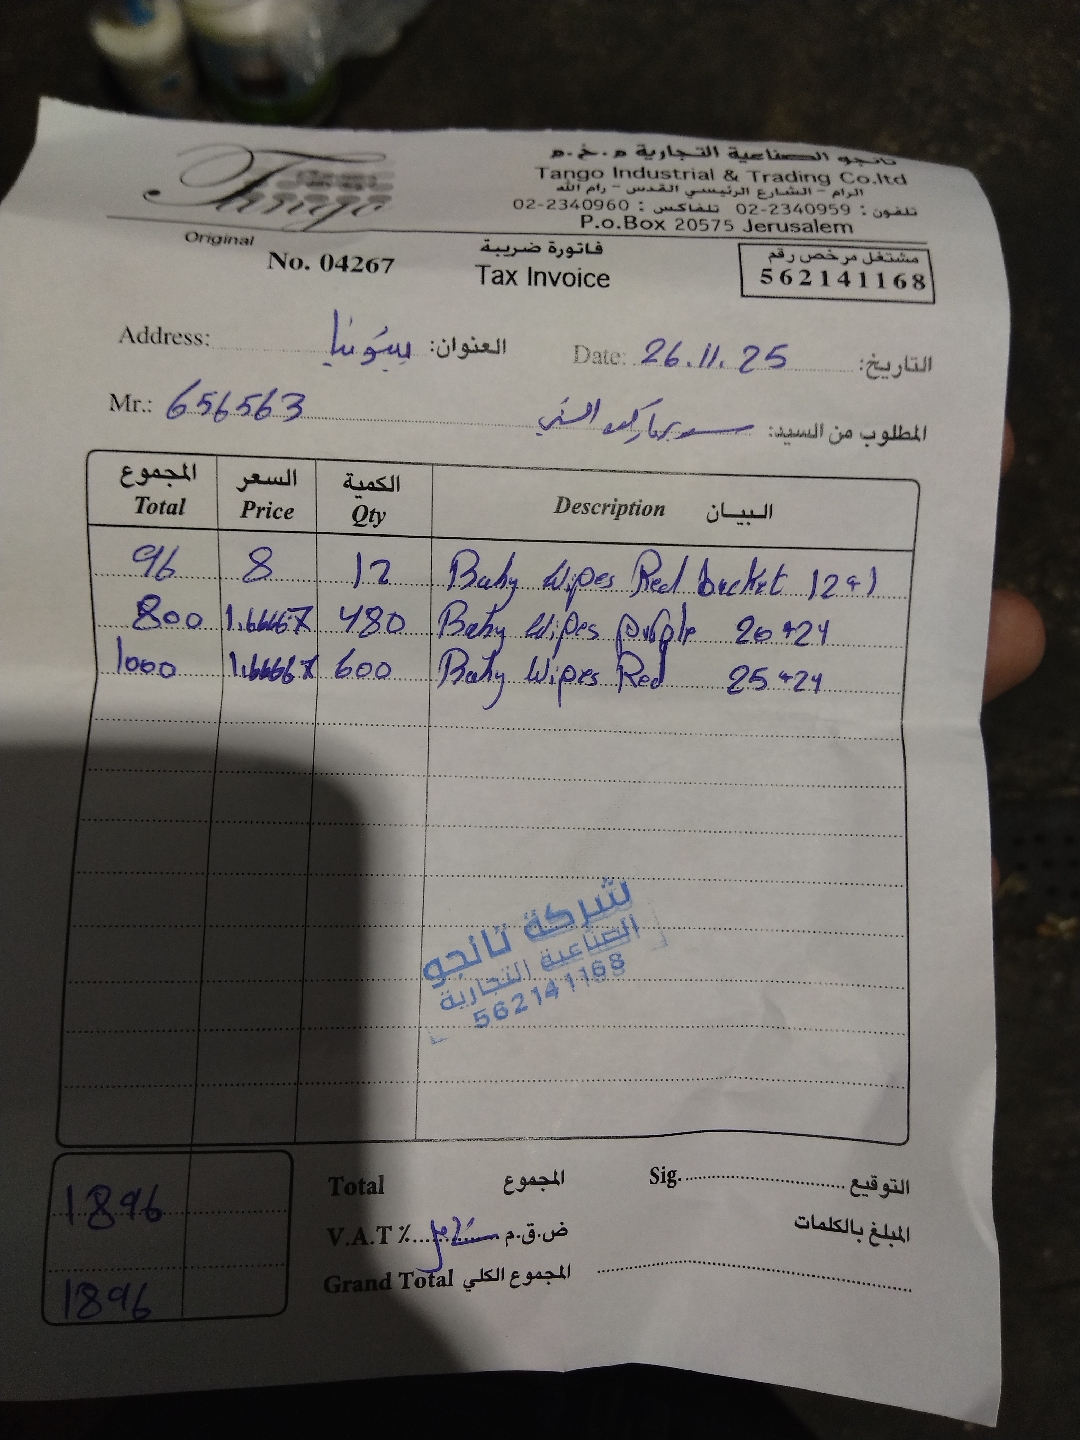 Tango
تانجو الصناعية التجارية م.خ.م
Tango Industrial & Trading Co.ltd
الرام - الشارع الرئيسي القدس - رام الله
تلفون : 02-2340959 تلفاكس : 02-2340960
P.o.Box 20575 Jerusalem
Original
No. 04267
فاتورة ضريبة
Tax Invoice
مشتغل مرخص رقم
562141168
Address: العنوان: بيتونيا
Date: 26.11.25 التاريخ:
Mr.: 656563 المطلوب من السيد: سوبرماركت
المجموع السعر الكمية
Total Price Qty Description البيان
96 8 12 Baby Wipes Red bucket 12+1
800 1.66667 480 Baby Wipes purple 20*24
1000 1.66667 600 Baby Wipes Red 25*24
شركة تانجو
الصناعية التجارية
562141168
1896 Total المجموع Sig. التوقيع
V.A.T ٪ ض.ق.م المبلغ بالكلمات
1896 Grand Total المجموع الكلي